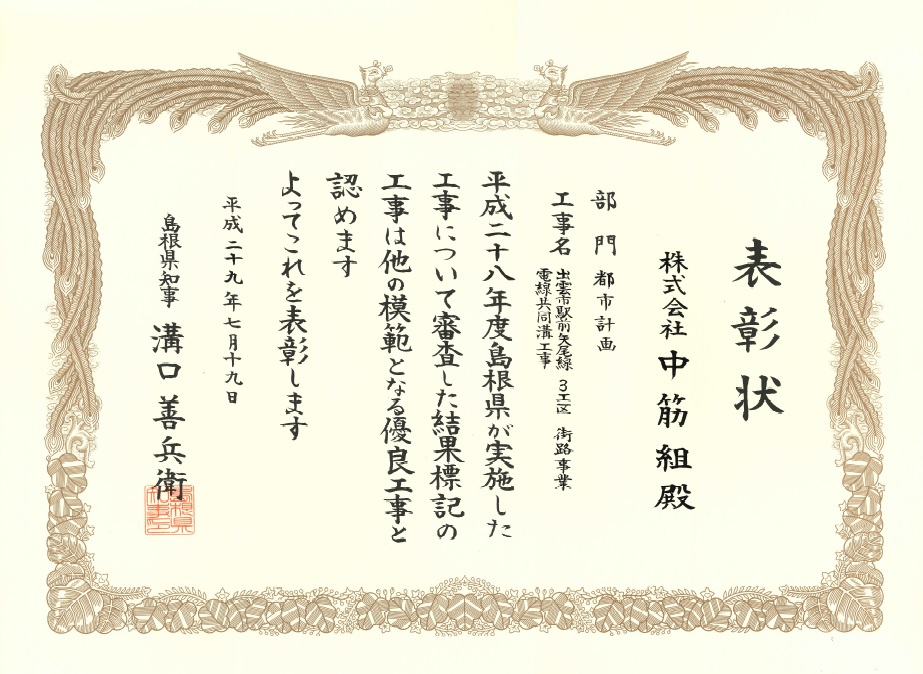 表彰状
株式会社 中筋組殿
部門 都市計画
工事名 出雲市駅前矢尾線 3工区 街路事業
電線共同溝工事
平成二十八年度島根県が実施した
工事について審査した結果標記の
工事は他の模範となる優良工事と
認めます
よってこれを表彰します
平成二十九年七月十九日
島根県知事 溝口善兵衛
島根県
知事之印